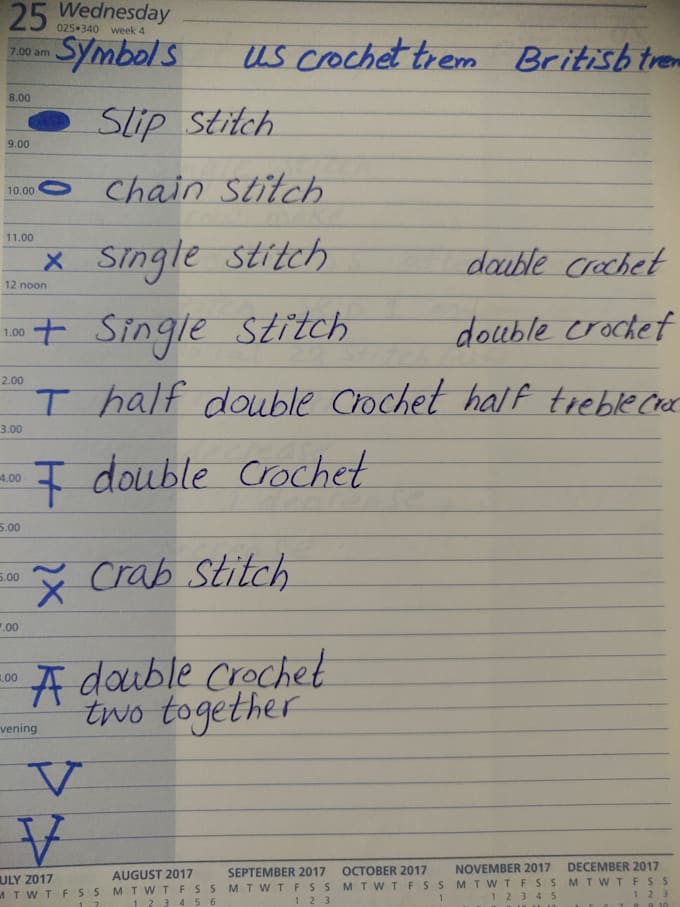 25 Wednesday
025•340 week 4
7.00 am Symbols US crochet trem British trem
8.00
Slip stitch
9.00
10.00 chain stitch
11.00
x single stitch double crochet
12 noon
1.00 + Single stitch double crochet
2.00
T half double crochet half treble croc
3.00
4.00 double crochet
5.00
6.00 crab stitch
7.00
8.00 double crochet
two together
evening
JULY 2017 AUGUST 2017 SEPTEMBER 2017 OCTOBER 2017 NOVEMBER 2017 DECEMBER 2017
M T W T F S S M T W T F S S M T W T F S S M T W T F S S M T W T F S S M T W T F S S
1 2 1 2 3 4 5 6 1 2 3 1 1 2 3 4 5 1 2 3